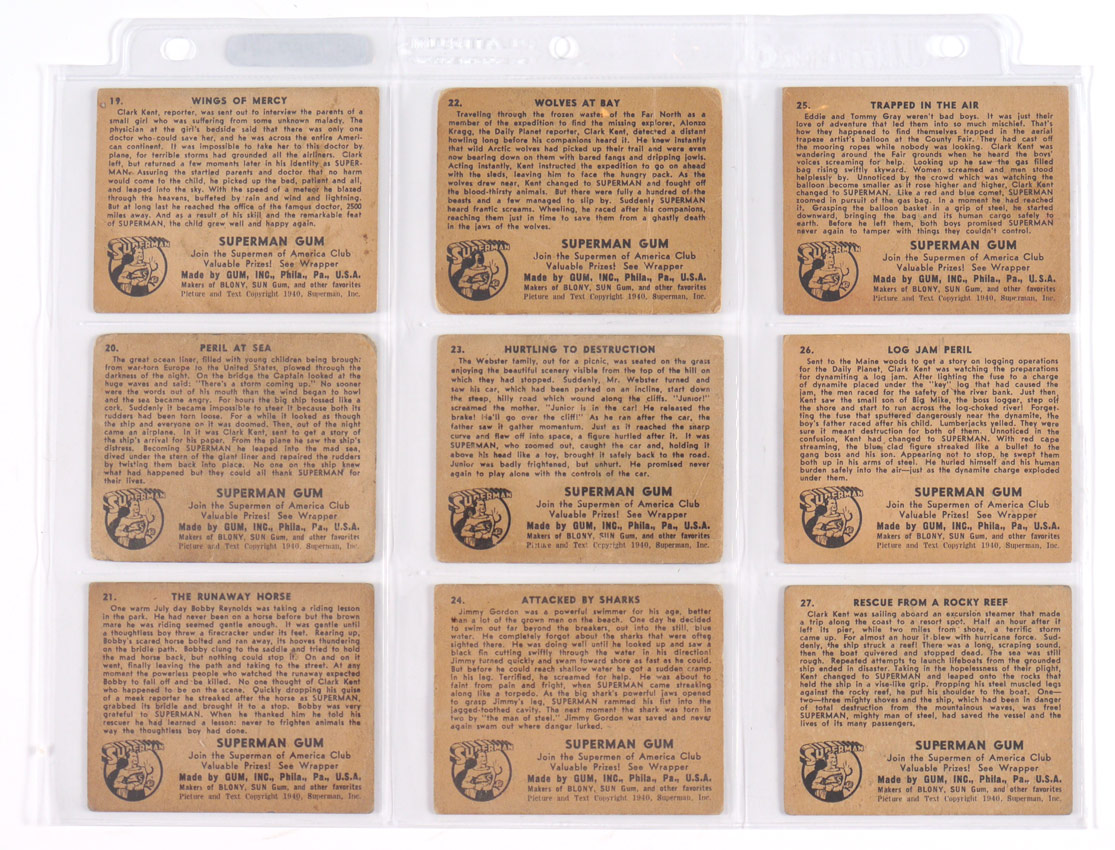 19. WINGS OF MERCY
Clark Kent, reporter, was sent out to interview the parents of a
small girl who was suffering from some unknown malady. The
physician at the girl's bedside said that there was only one
doctor who could save her, and he was across the entire Ameri-
can continent. It was impossible to take her to this doctor by
plane, for terrible storms had grounded all the airliners. Clark
left, but returned a few moments later in his identity as SUPER-
MAN. Assuring the startled parents and doctor that no harm
would come to the child, he picked up the bed, patient and all,
and leaped into the sky. With the speed of a meteor he blazed
through the heavens, buffeted by rain and wind and lightning.
But at long last he reached the office of the famous doctor, 2500
miles away. And as a result of his skill and the remarkable feat
of SUPERMAN, the child grew well and happy again.
SUPERMAN
SUPERMAN GUM
Join the Supermen of America Club
Valuable Prizes! See Wrapper
Made by GUM, INC., Phila., Pa., U.S.A.
Makers of BLONY, SUN Gum, and other favorites
Picture and Text Copyright 1940, Superman, Inc.
20. PERIL AT SEA
The great ocean liner, filled with young children being brought
from war-torn Europe to the United States, plowed through the
darkness of the night. On the bridge the Captain looked at the
huge waves and said: "There's a storm coming up." No sooner
were the words out of his mouth than the wind began to howl
and the sea became angry. For hours the big ship tossed like a
cork. Suddenly it became impossible to steer it because both its
rudders had been torn loose. For a while it looked as though
the ship and everyone on it was doomed. Then, out of the night
came an airplane. In it was Clark Kent, sent to get a story of
the ship's arrival for his paper. From the plane he saw the ship's
distress. Becoming SUPERMAN he leaped into the mad sea,
dived under the stern of the giant liner and repaired the rudders
by twisting them back into place. No one on the ship knew
what had happened but they could all thank SUPERMAN for
their lives.
SUPERMAN
SUPERMAN GUM
Join the Supermen of America Club
Valuable Prizes! See Wrapper
Made by GUM, INC., Phila., Pa., U.S.A.
Makers of BLONY, SUN Gum, and other favorites
Picture and Text Copyright 1940, Superman, Inc.
21. THE RUNAWAY HORSE
One warm July day Bobby Reynolds was taking a riding lesson
in the park. He had never been on a horse before but the brown
mare he was riding seemed gentle enough. It was gentle until
a thoughtless boy threw a firecracker under its feet. Rearing up,
Bobby's scared horse bolted and ran away, its hooves thundering
on the bridle path. Bobby clung to the saddle and tried to hold
the mad horse back, but nothing could stop it. On and on it
went, finally leaving the path and taking to the street. At any
moment the powerless people who watched the runaway expected
Bobby to fall off and be killed. No one thought of Clark Kent
who happened to be on the scene. Quickly dropping his guise
of a meek reporter he streaked after the horse as SUPERMAN,
grabbed its bridle and brought it to a stop. Bobby was very
grateful to SUPERMAN. When he thanked him he told his
rescuer he had learned a lesson: never to frighten animals the
way the thoughtless boy had done.
SUPERMAN
SUPERMAN GUM
Join the Supermen of America Club
Valuable Prizes! See Wrapper
Made by GUM, INC., Phila., Pa., U.S.A.
Makers of BLONY, SUN Gum, and other favorites
Picture and Text Copyright 1940, Superman, Inc.
22. WOLVES AT BAY
Traveling through the frozen wastes of the Far North as a
member of the expedition to find the missing explorer, Alonso
Kragg, the Daily Planet reporter, Clark Kent, detected a distant
howling long before his companions heard it. He knew instantly
that wild Arctic wolves had picked up their trail and were even
now bearing down on them with bared fangs and dripping jowls.
Acting instantly, Kent instructed the expedition to go on ahead
with the sleds, leaving him to face the hungry pack. As the
wolves drew near, Kent changed to SUPERMAN and fought off
the blood-thirsty animals. But there were fully a hundred of the
beasts and a few managed to slip by. Suddenly SUPERMAN
heard frantic screams. Wheeling, he raced after his companions,
reaching them just in time to save them from a ghastly death
in the jaws of the wolves.
SUPERMAN
SUPERMAN GUM
Join the Supermen of America Club
Valuable Prizes! See Wrapper
Made by GUM, INC., Phila., Pa., U.S.A.
Makers of BLONY, SUN Gum, and other favorites
Picture and Text Copyright 1940, Superman, Inc.
23. HURTLING TO DESTRUCTION
The Webster family, out for a picnic, was seated on the grass
enjoying the beautiful scenery visible from the top of the hill on
which they had stopped. Suddenly, Mr. Webster turned and
saw his car, which had been parked on an incline, start down
the steep, hilly road which wound along the cliffs. "Junior!"
screamed the mother. "Junior is in the car! He released the
brake! He'll go over the cliff!" As he ran after the car, the
father saw it gather momentum. Just as it reached the sharp
curve and flew off into space, a figure hurtled after it. It was
SUPERMAN, who swooped out, caught the car and, holding it
above his head like a toy, brought it safely back to the road.
Junior was badly frightened, but unhurt. He promised never
again to play alone with the controls of the car.
SUPERMAN
SUPERMAN GUM
Join the Supermen of America Club
Valuable Prizes! See Wrapper
Made by GUM, INC., Phila., Pa., U.S.A.
Makers of BLONY, SUN Gum, and other favorites
Picture and Text Copyright 1940, Superman, Inc.
24. ATTACKED BY SHARKS
Jimmy Gordon was a powerful swimmer for his age, better
than a lot of the grown men on the beach. One day he decided
to swim out far beyond the breakers, out into the still, blue
water. He completely forgot about the sharks that were often
sighted there. He was doing well until he looked up and saw a
black fin cutting swiftly through the water in his direction!
Jimmy turned quickly and swam toward shore as fast as he could.
But before he could reach shallow water he got a sudden cramp
in his leg. Terrified, he screamed for help. He was about to
faint from pain and fright, when SUPERMAN came streaking
along like a torpedo. As the big shark's powerful jaws opened
to grasp Jimmy's leg, SUPERMAN rammed his fist into the
jagged-toothed cavity. The next moment the shark was torn in
two by "the man of steel." Jimmy Gordon was saved and never
again swam out where danger lurked.
SUPERMAN
SUPERMAN GUM
Join the Supermen of America Club
Valuable Prizes! See Wrapper
Made by GUM, INC., Phila., Pa., U.S.A.
Makers of BLONY, SUN Gum, and other favorites
Picture and Text Copyright 1940, Superman, Inc.
25. TRAPPED IN THE AIR
Eddie and Tommy Gray weren't bad boys. It was just their
love of adventure that led them into so much mischief. That's
how they happened to find themselves trapped in the aerial
trapeze artist's balloon at the County Fair. They had cast off
the mooring ropes while nobody was looking. Clark Kent was
wandering around the Fair grounds when he heard the boys'
voices screaming for help. Looking up he saw the gas filled
bag rising swiftly skyward. Women screamed and men stood
helplessly by. Unnoticed by the crowd which was watching the
balloon become smaller as it rose higher and higher, Clark Kent
changed to SUPERMAN. Like a red and blue comet, SUPERMAN
zoomed in pursuit of the gas bag. In a moment he had reached
it. Grasping the balloon basket in a grip of steel, he started
downward, bringing the bag and its human cargo safely to
earth. Before he left them, both boys promised SUPERMAN
never again to tamper with things they couldn't control.
SUPERMAN
SUPERMAN GUM
Join the Supermen of America Club
Valuable Prizes! See Wrapper
Made by GUM, INC., Phila., Pa., U.S.A.
Makers of BLONY, SUN Gum, and other favorites
Picture and Text Copyright 1940, Superman, Inc.
26. LOG JAM PERIL
Sent to the Maine woods to get a story on logging operations
for the Daily Planet, Clark Kent was watching the preparations
for dynamiting a log jam. After lighting the fuse to a charge
of dynamite placed under the "key" log that had caused the
jam, the men raced for the safety of the river bank. Just then
Kent saw the small son of Big Mike, the boss logger, step off
the shore and start to run across the log-choked river! Forget-
ting the fuse that sputtered dangerously near the dynamite, the
boy's father raced after his child. Lumberjacks yelled. They were
sure it meant destruction for both of them. Unnoticed in the
confusion, Kent had changed to SUPERMAN. With red cape
streaming, the blue clad figure streaked like a bullet to the
gang boss and his son. Appearing not to stop, he swept them
both up in his arms of steel. He hurled himself and his human
burden safely into the air—just as the dynamite charge exploded
under them.
SUPERMAN
SUPERMAN GUM
Join the Supermen of America Club
Valuable Prizes! See Wrapper
Made by GUM, INC., Phila., Pa., U.S.A.
Makers of BLONY, SUN Gum, and other favorites
Picture and Text Copyright 1940, Superman, Inc.
27. RESCUE FROM A ROCKY REEF
Clark Kent was sailing aboard an excursion steamer that made
a trip along the coast to a resort spot. Half an hour after it
left its pier, while two miles from shore, a terrific storm
came up. For almost an hour it blew with hurricane force. Sud-
denly, the ship struck a reef! There was a long, scraping sound,
then the boat quivered and stopped dead. The sea was still
rough. Repeated attempts to launch lifeboats from the grounded
ship ended in disaster. Taking in the hopelessness of their plight,
Kent changed to SUPERMAN and leaped onto the rocks that
held the ship in a vise-like grip. Propping his steel muscled legs
against the rocky reef, he put his shoulder to the boat. One—
two—three mighty shoves and the ship, which had been in danger
of total destruction from the mountainous waves, was free!
SUPERMAN, mighty man of steel, had saved the vessel and the
lives of its many passengers.
SUPERMAN
SUPERMAN GUM
Join the Supermen of America Club
Valuable Prizes! See Wrapper
Made by GUM, INC., Phila., Pa., U.S.A.
Makers of BLONY, SUN Gum, and other favorites
Picture and Text Copyright 1940, Superman, Inc.